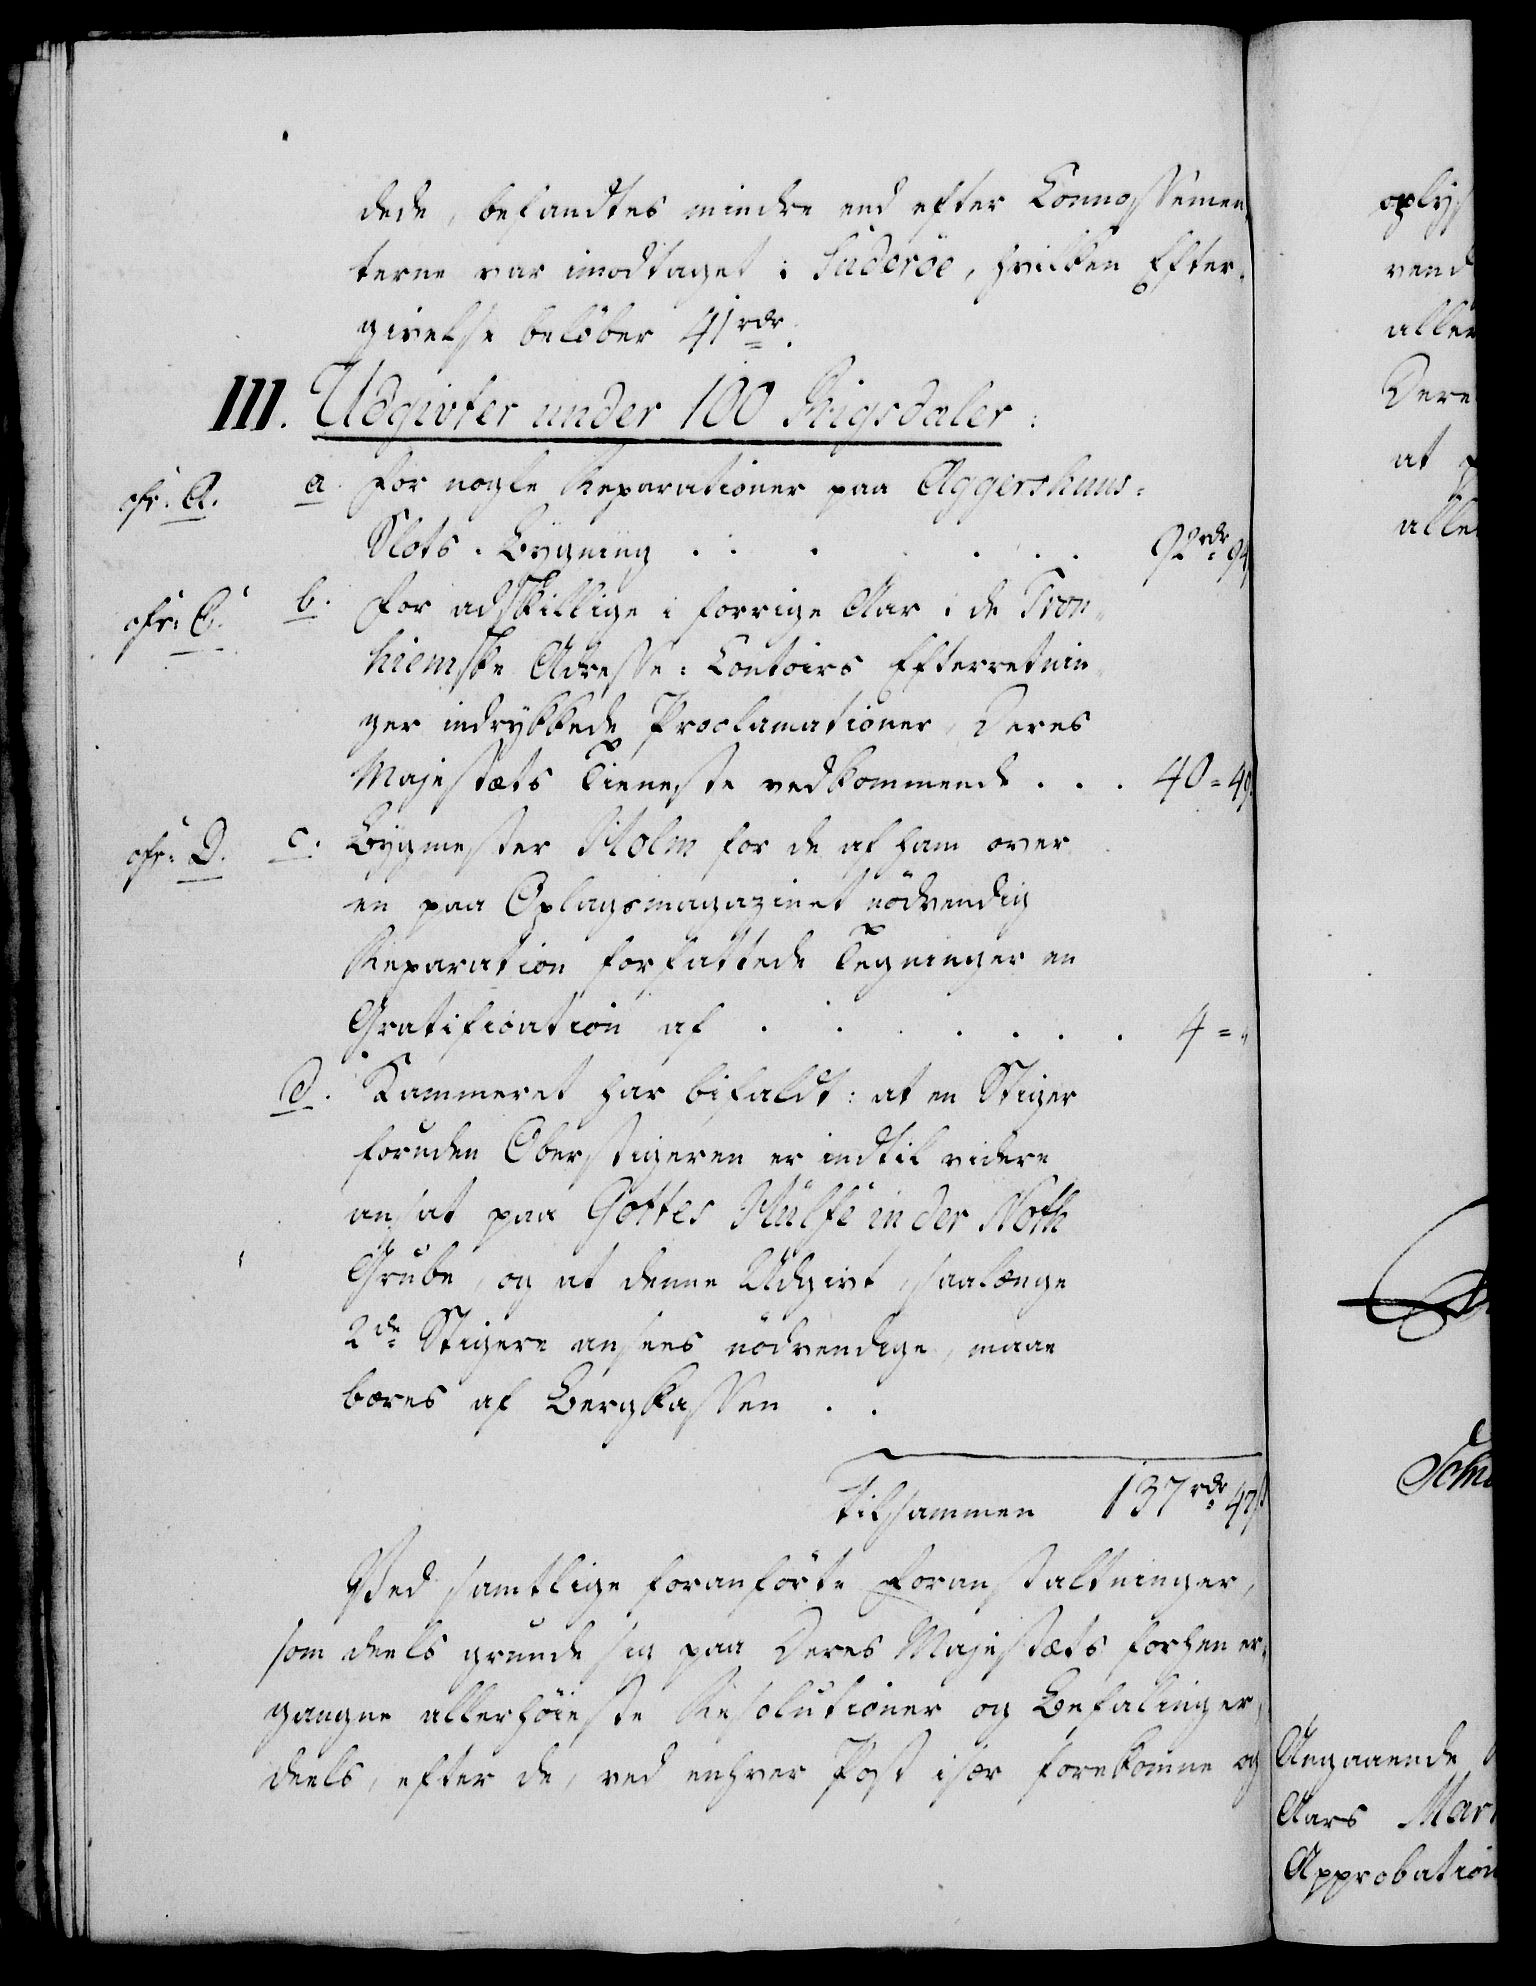 dede, befandtes mindre end efter Connossemen-
terne var imodtaget i Suderöe, hvilken Efter-
givelse belöber 41 rdr.
III. Udgivter under 100 Rigsdaler:
cfr: A. a. For nogle Reparationer paa Aggershuus-
Slots-Bygning . . . . . . 92 rdr 94
cfr: C. b. For adskillige i forrige Aar i de Tron-
hiemske Adresse-Contoirs Efterretnin-
ger indrykkede Proclamationer, Deres
Majestæts Tieneste vedkommende . . . 40 = 49
cfr: D. c. Bygmester Holm for de af ham over
en paa Oplagsmagazinet nödvendig
Reparation forfattede Tegninger en
Gratification af . . . . . . 4 = "
d. Kammeret har bifaldt: at en Stiger
foruden Oberstigeren er indtil videre
ansat paa Gottes Hülfe in der Noth
Grube, og at denne Udgivt, saalænge
2de Stigere ansees nödvendige, maae
bæres af Bergkassen . .
Tilsammen 137 rdr 47 s
Ved samtlige foranförte Foranstaltninger,
som deels grunde sig paa Deres Majestæts forhen er-
gangne allerhöieste Resolutioner og Befalinger,
deels, efter de, ved enhver Post især forekomne og
oplys
vend
aller
Dere
at
alle
Angaaende
Aars Mar
Approbation